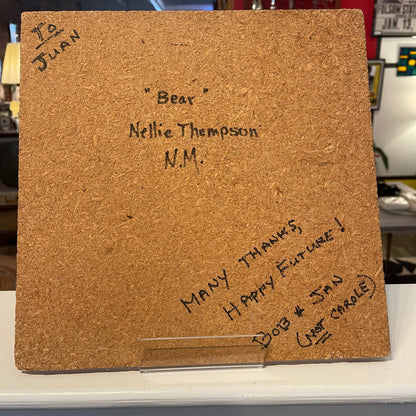 TO
JUAN
"Bear"
Nellie Thompson
N.M.
MANY THANKS,
HAPPY FUTURE!
BOB & JAN
(NOT CAROLE)
FOLSOM STAT
JAN. 13,